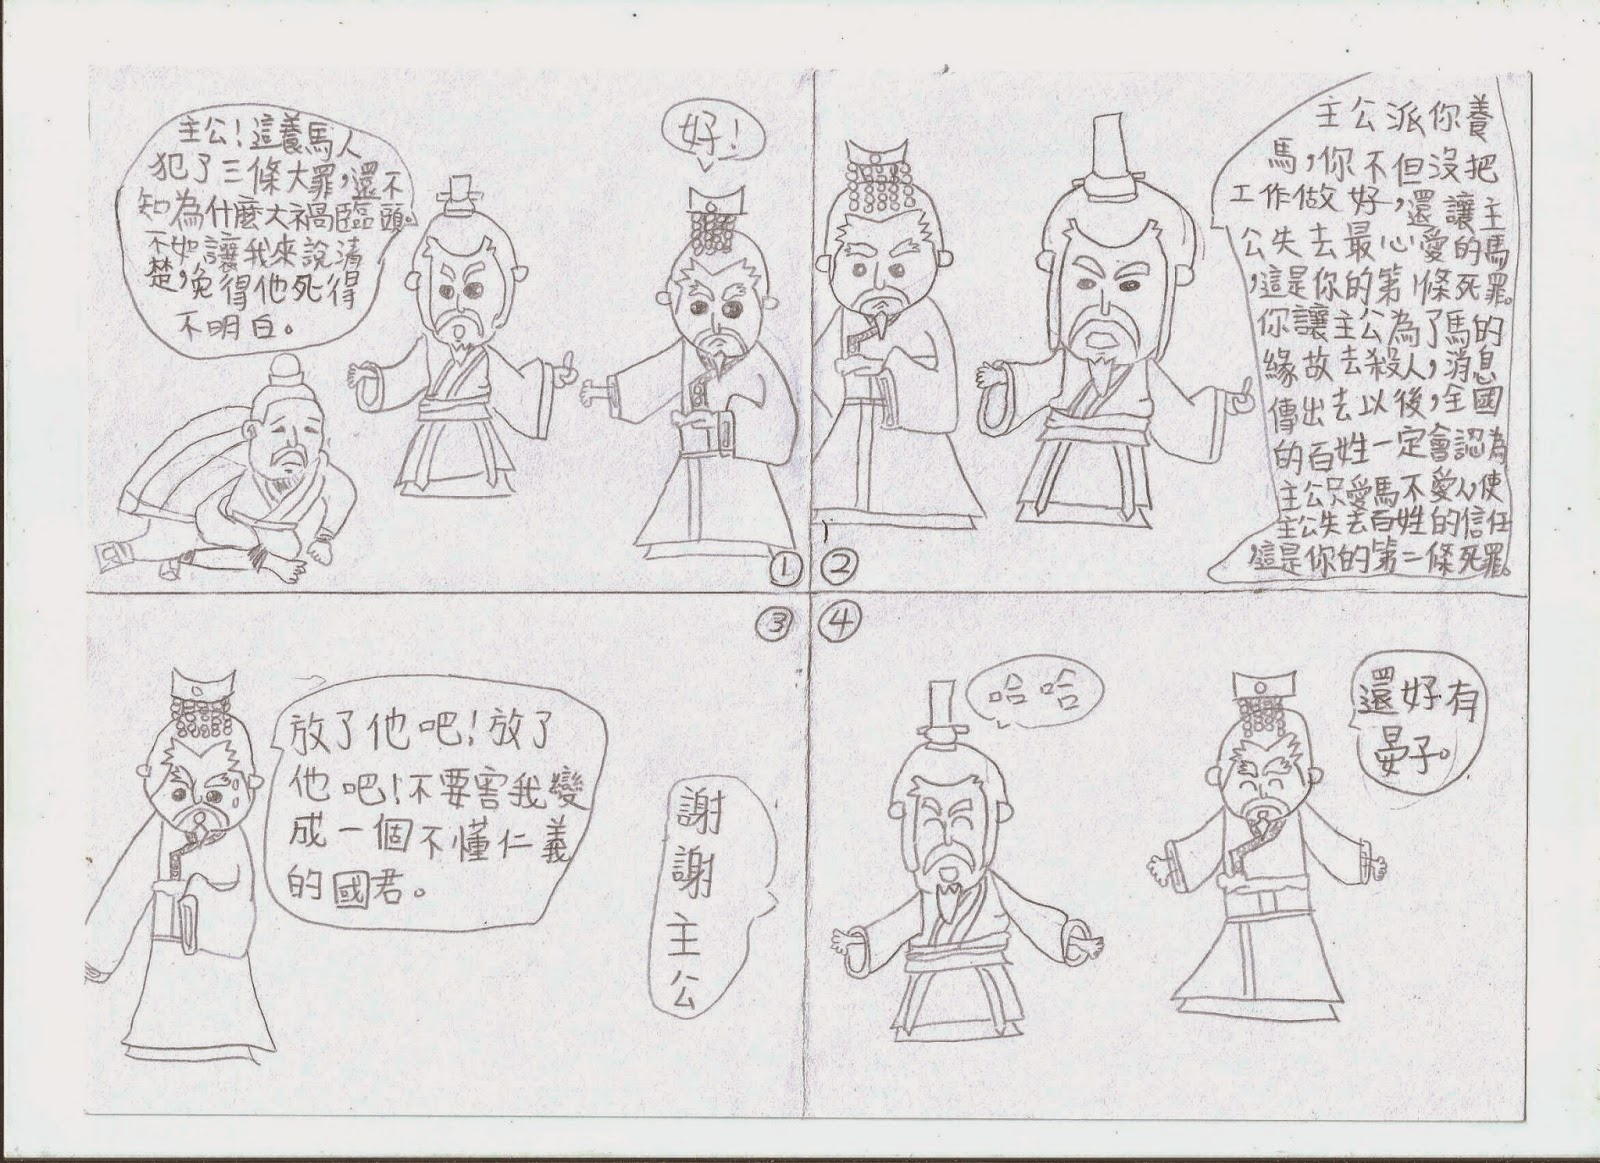 主公！這養馬人
犯了三條大罪，還不
知為什麼大禍臨頭。
不如讓我來說清
楚，免得他死得
不明白。
好！
①
主公派你養
馬，你不但沒把
工作做好，還讓主
公失去最心愛的馬
，這是你的第1條死罪。
你讓主公為了馬的
緣故去殺人，消息
傳出去以後，全國
的百姓一定會認為
主公只愛馬不愛人，使
主公失去百姓的信任
，這是你的第二條死罪。
②
③
放了他吧！放了
他吧！不要害我變
成一個不懂仁義
的國君。
謝謝主公
④
哈哈
還好有
晏子。